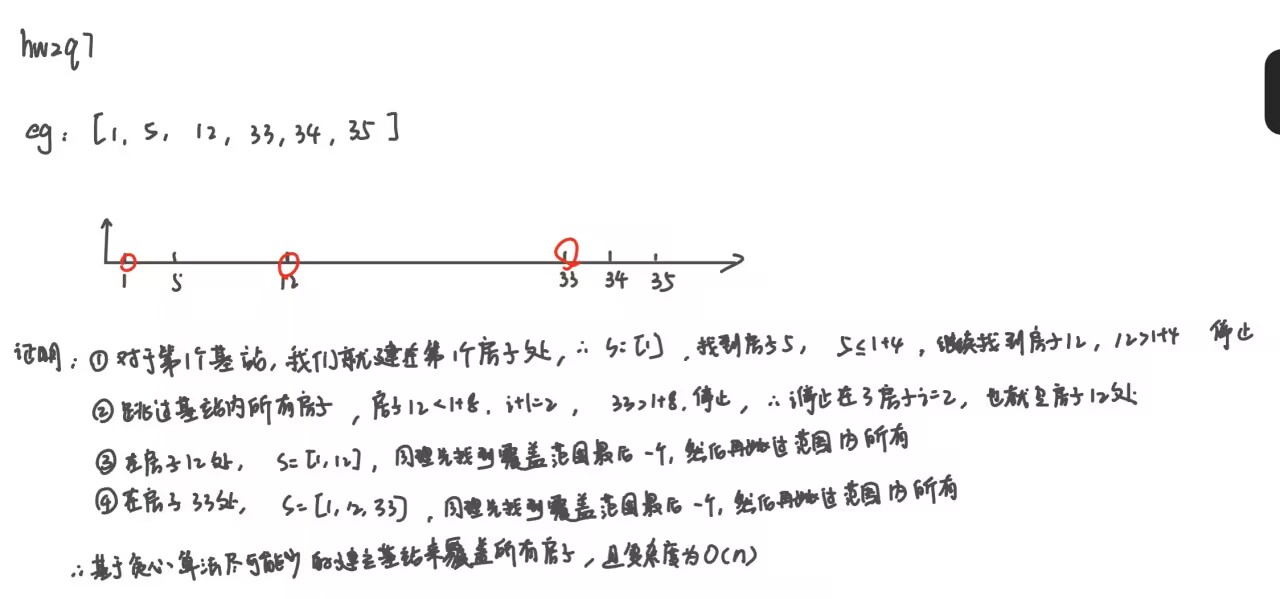 hw2q7
eg: [1, 5, 12, 33, 34, 35]
1 5 12 33 34 35
证明: ① 对于第1个基站, 我们就建在第1个房子处, ∴ S=[1], 找到房子5, 5≤1+4, 继续找到房子12, 12>1+4 停止
② 跳过基站内所有房子, 房子12<1+8, i+1=2, 33>1+8, 停止, ∴ i停止在了房子i=2, 也就是房子12处
③ 在房子12处, S=[1,12], 同理先找到覆盖范围最后一个, 然后再跳过范围内所有
④ 在房子33处, S=[1,12,33], 同理先找到覆盖范围最后一个, 然后再跳过范围内所有
∴ 基于贪心算法尽可能少的建立基站来覆盖所有房子, 且复杂度为O(n)